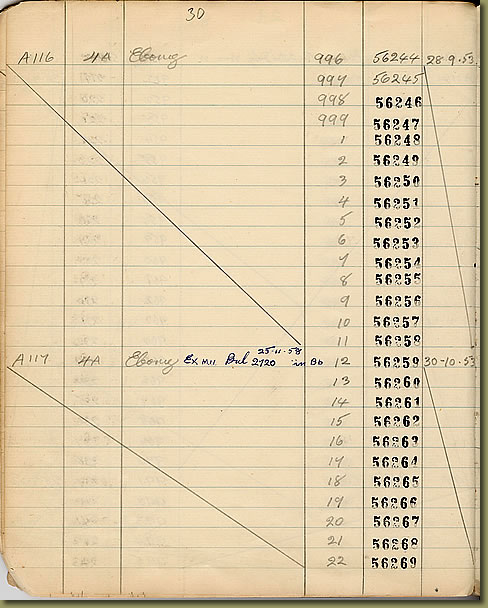 30
A116 4A Ebony 996 56244 28.9.53
997 56245
998 56246
999 56247
1 56248
2 56249
3 56250
4 56251
5 56252
6 56253
7 56254
8 56255
9 56256
10 56257
11 56258
25.11.58
A117 4A Ebony Ex Mil 2720 in Bb 12 56259 30-10.53
13 56260
14 56261
15 56262
16 56263
17 56264
18 56265
19 56266
20 56267
21 56268
22 56269